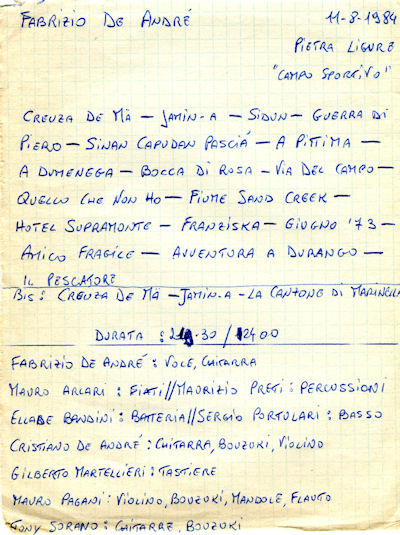 FABRIZIO DE ANDRÉ 11-8-1984
PIETRA LIGURE
"CAMPO SPORTIVO"
CREUZA DE MÄ — JAMIN-A — SIDUN — GUERRA DI
PIERO — SINAN CAPUDAN PASCIÁ — A PITTIMA —
A DUMENEGA — BOCCA DI ROSA — VIA DEL CAMPO —
QUELLO CHE NON HO — FIUME SAND CREEK —
HOTEL SUPRAMONTE — FRANZISKA — GIUGNO '73 —
AMICO FRAGILE — AVVENTURA A DURANGO —
IL PESCATORE
BIS: CREUZA DE MÄ — JAMIN-A - LA CANZONE DI MARINELLA
DURATA : .30 / 2400
FABRIZIO DE ANDRÉ : VOCE, CHITARRA
MAURO ARCARI : FIATI // MAURIZIO PRETI : PERCUSSIONI
ELLADE BANDINI : BATTERIA // SERGIO PORTULARI : BASSO
CRISTIANO DE ANDRÉ : CHITARRA, BOUZOKI, VIOLINO
GILBERTO MARTELLIERI : TASTIERE
MAURO PAGANI : VIOLINO, BOUZOKI, MANDOLE, FLAUTO
TONY SORANO : CHITARRE, BOUZOKI